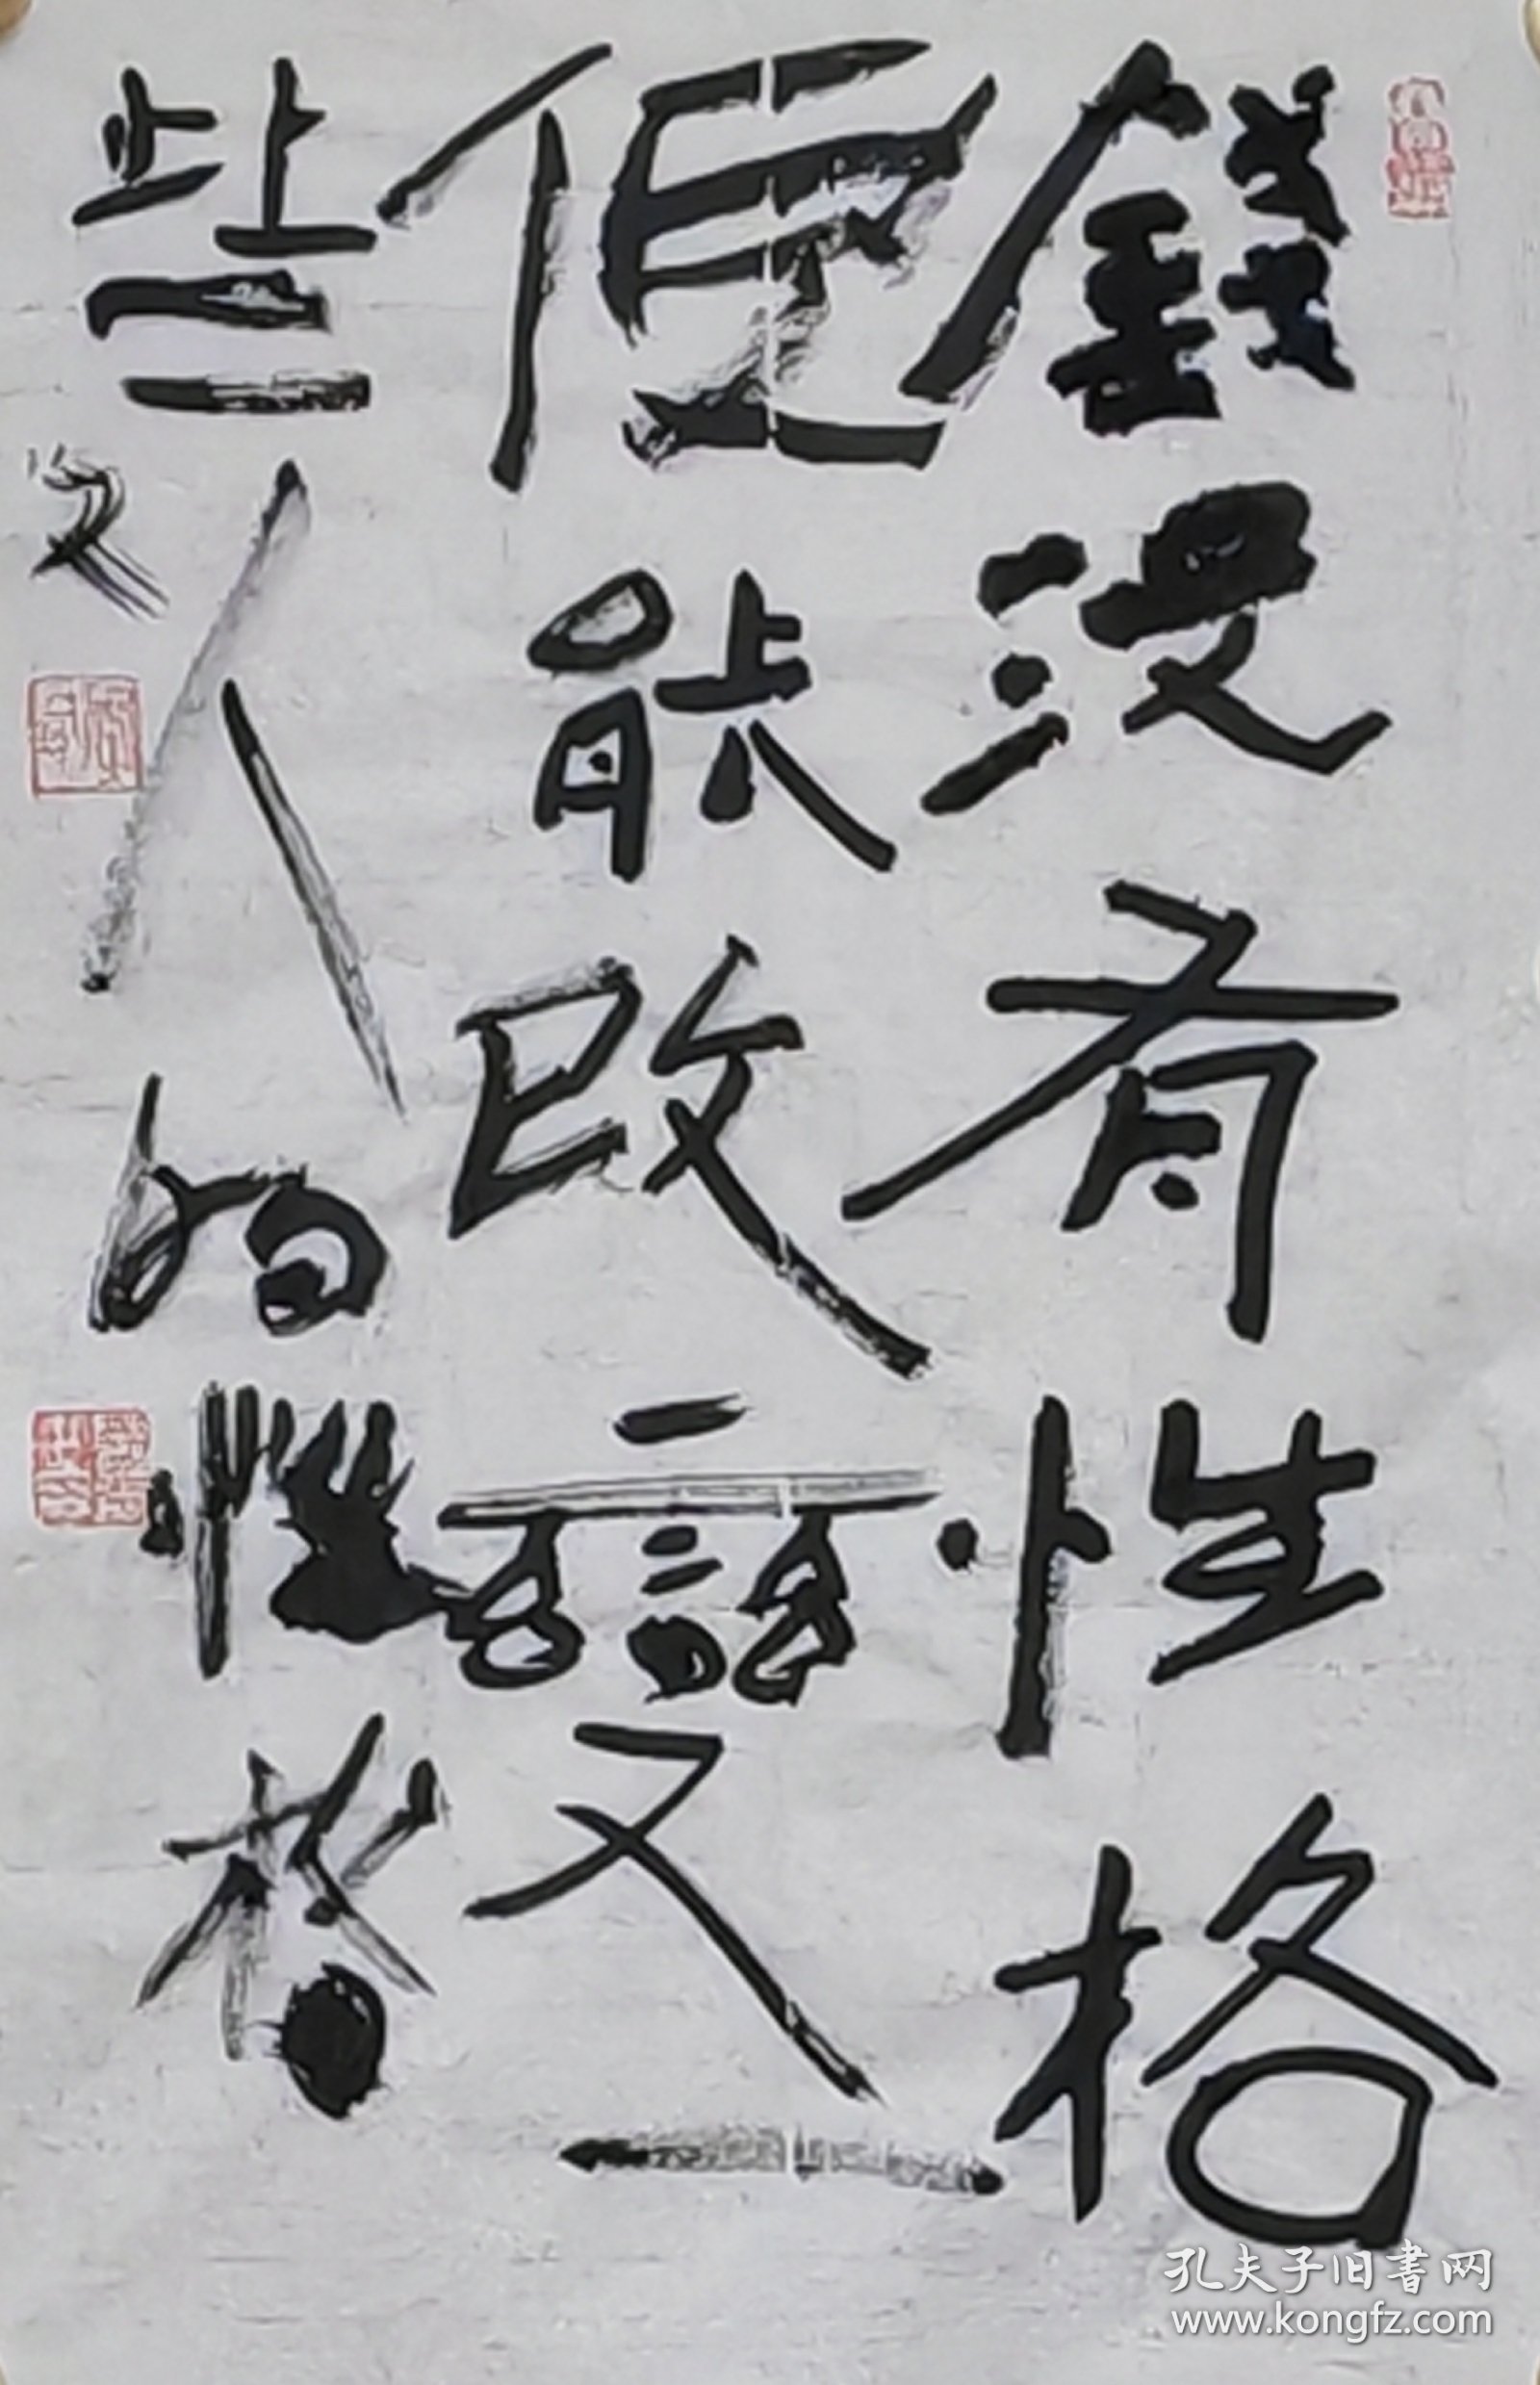 錢没有性格
但能改變又一
些人的性格
孔夫子旧書网
www.kongfz.com